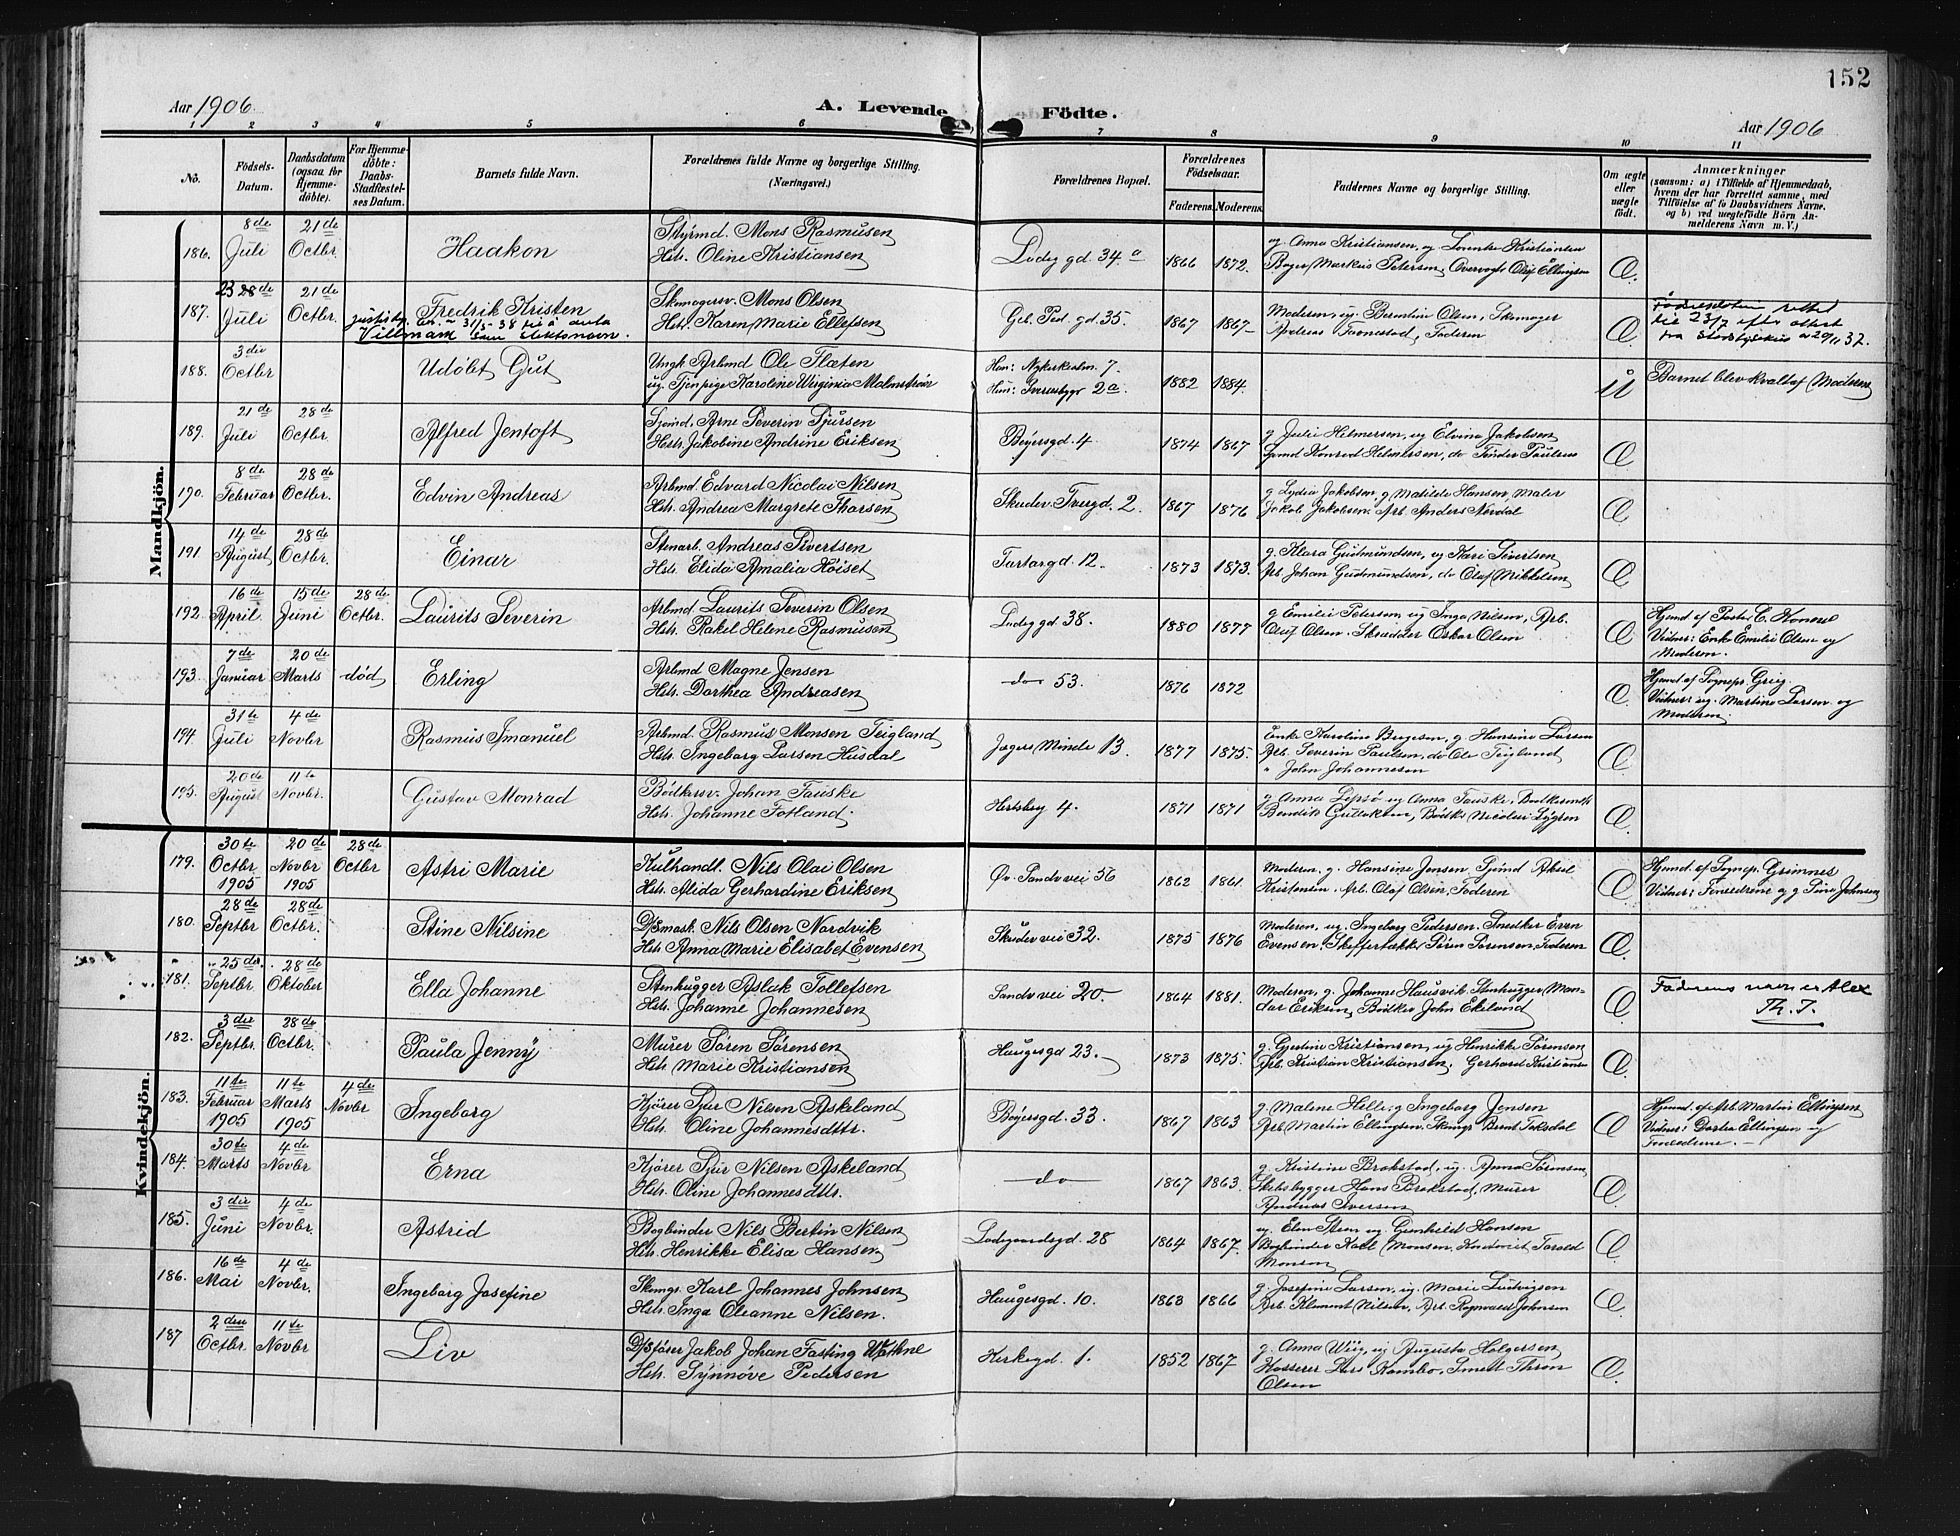 152
Aar 1906
A. Levende Födte.
Aar 1906
1 2 3 4 5 6 7 8 9 10 11
No.
Födsels-
Datum.
Daabsdatum
(ogsaa for
Hjemme-
döbte).
For Hjemme-
döbte:
Daabs-
Stadfæstel-
ses Datum.
Barnets fulde Navn.
Forældrenes fulde Navne og borgerlige Stilling.
(Næringsvei.)
Forældrenes Bopæl.
Forældrenes
Födselsaar.
Faderens. Moderens.
Faddernes Navne og borgerlige Stilling.
Om ægte
eller
uægte
födt.
Anmærkninger
(saasom: a) i Tilfælde af Hjemmedaab,
hvem der har forrettet samme, med
Tilföielse af to Daabsvidners Navne,
og b) ved uægtefödte Börn An-
melderens Navn m. V.)
Mandkjön.
186. 8de Juli 21de Octbr. Haakon
Styrmd. Mons Rasmusen
Hstr. Oline Kristiansen
Ladeg gd 34a 1866 1872.
ug. Anna Kristiansen, ug Lorentse Kristiansen
Bager Markus Petersen, Overvogt Oluf Ellingsen
Æ.
187. 23 28de Juli 21de Octbr. Fredrik Kristen
31/5-38 til å anta
Villmark som slektsnavn.
Skomagersv. Mons Olsen
Hstr. Karen Marie Ellefsen
Geb. Ped. gd. 35. 1867 1867
Moderen, ug. Berntine Olsen, Skomager
Andreas Tonnestad, Faderen
Æ
Fødselsdaten rettet
til 23/7 efter attest
fra Stiftstysekus a 29/11 37.
188. 3die Octbr Udøbt Gut
Ungk Arbmd Ole Flaten
ug. Tjenpige Karoline Virginia Malmstrøm
Han: Nykirkealm. 7.
Hun: Sverresbygt 2a. 1882 1884.
U
Barnet blev kvalt af Moderen
189. 21de Juli 28de Octbr. Alfred Jentoft
Sjømd. Arne Severin Sjursen
Hstr. Jakobine Andrine Eriksen
Bøyersgd. 4 1874 1867
g. Julie Helmersen, ug Elvina Jakobsen
Sjømd Konrad Helmersen, do Tinder Paulsen
Æ
190. 8de Februar 28de Octbr. Edvin Andreas
Arbmd. Edvard Nicolai Nilsen
Hstr. Andrea Margrete Tharsen
Skuder Tvergd. 2. 1867 1876
g. Lydia Jakobsen, g. Matilde Hansen, Maler
Jakob Jakobsen. Arb. Anders Nordal
Æ
191. 14de August 28de Octbr. Einar
Stenarb. Andreas Sivertsen
Hstr. Elida Amalia Høiset
Tartargd. 12. 1873 1873.
g. Klara Gudmundsen, ug Kari Sivertsen
Arb. Johan Gudmundsen, do Olaf Mikkelsen
Æ
192. 16de April 15de Juni 28de Octbr. Laurits Severin
Arbmd Laurits Severin Olsen
Hstr. Rakel Helene Rasmusen
Ladeg gd 38. 1880 1877
g. Emilie Petersen ug Inga Nilsen, Arb.
Oluf Olsen. Skrædder Oskar Olsen
Æ
Hjemd af Pastor C. Konow
Vidner: Enke Emilie Olsen og
Moderen.
193. 7de Januar 20de Marts død Erling
Arbmd Magne Jensen
Hstr. Dorthea Andreasen
do 53. 1876 1872
Æ
Hjemd af Sognepr. Grieg
Vidner: ug. Martine Larsen og
Moderen
194. 31te Juli 4de Novbr Rasmus Imanuel
Arbmd. Rasmus Monsen Teigland
Hstr. Ingeborg Larsen Husdal
Jægers Minde 13. 1877 1875.
Enke Karoline Bergesen, g. Hansine Larsen
Arb. Severin Paulsen, do Ole Teigland
" John Johannesen
Æ
195. 20de August 11te Novbr. Gustav Monrad
Bødkersv. Johan Tauske
Hstr. Johanne Totland.
Hertsbeg 4. 1871 1871
g. Anna Lepsø ug Anna Tauske, Bødkersmth
Bendik Gullaksen, Bødks Nicolai Lygren
Æ.
Kvindekjön.
179. 30te Octbr 1905 20de Novbr 1905 28de Octbr Astri Marie
Kulhandl. Nils Olai Olsen
Hstr. Alida Gerhardine Eriksen
Øv. Sandvvei 56 1862 1861.
Moderen, g. Hansine Jensen Sjømd Aksel
Kristensen, Arb. Olaf Olsen, Faderen
Æ
Hjemd. af Sognep. Grimnes
Vidner: Forældrene og g Johnsen
180. 28de Septbr 28de Octbr. Stine Nilsine
D/Smask. Nils Olsen Nordvik
Hstr. Anna Marie Elisabet Evensen
Skuder vei 32. 1875 1876
Moderen, ug. Ingeborg Pedersen. Snedker Even
Evensen, Skeppertække Sören Sørensen, Faderen
Æ.
181. 25de Septbr. 28de Oktober Ella Johanne
Stenhugger Aslak Tollefsen
Hstr. Johanne Johannesen
Sandv vei 20. 1864 1881.
Moderen, g. Johanne Hausvik. Stenhugger Man-
dar Eriksen, Bødker John Ekelund
Æ
Faderens navn er Alex
Th. T.
182. 3die Septbr. 28de Octbr. Paula Jenny
Murer Søren Sørensen
Hstr. Marie Kristiansen
Haugesgd 23. 1873 1875.
g. Gjertine Kristiansen, ug Henrikke Sørensen
Arb. Kristian Kristiansen. Gerhard Kristiansen
Æ.
183. 11te Februar 1905 11te Marts 1905 4de Novbr Ingeborg
Kjører Sjur Nilsen Askeland
Hstr. Oline Johannesdttr.
Bøyersgd. 33. 1867 1863
g. Malene Helle, g Ingeborg Jensen
Arb Martin Ellingsen, Skomgr Bernt Toksdal
Æ
Hjemd. af Arb. Martin Ellingsen
Vidner: Dortea Ellingsen og
Forældrene. —
184. 30te Marts 4de Novbr. Erna
Kjører Sjur Nilsen Askeland
Hstr. Oline Johannesdttr.
do 1867 1863.
g. Kristine Brakstad, ug. Anna Sørensen,
Skibsbygger Hans Brakstad, Murer
Andreas Iversen
Æ
185. 3die Juni 4de Novbr. Astrid
Bogbinder Nils Bertin Nilsen
Hstr. Henrikke Elisa Hansen
Ladegaardsgd. 28 1864 1867.
ug. Elen Steen ug Gunhild Hansen
Bogbinder Karl Monsen, Kontorist Torald
Monson
Æ.
186. 16de Mai 4de Novbr. Ingeborg Josefine
Skomgr. Karl Johannes Johnsen
Hstr. Inga Oleanne Nilsen.
Haugesgd. 10. 1868 1866
g. Josefine Larsen, ug. Marie Ludvigsen
Arb. Klement Nilsen, Arb. Ragnvald Johnsen
Æ
187 2den Octbr. 11te Novbr. Liv
D/Sfører Jakob Johan Fasting Wathne
Hstr. Synnøve Pedersen
Kirkegd. 1. 1852 1867
g. Anna Wiig, ug Augusta Holgersen
Kasserer Lars Nambo, Smed Thron
Olsen
Æ.